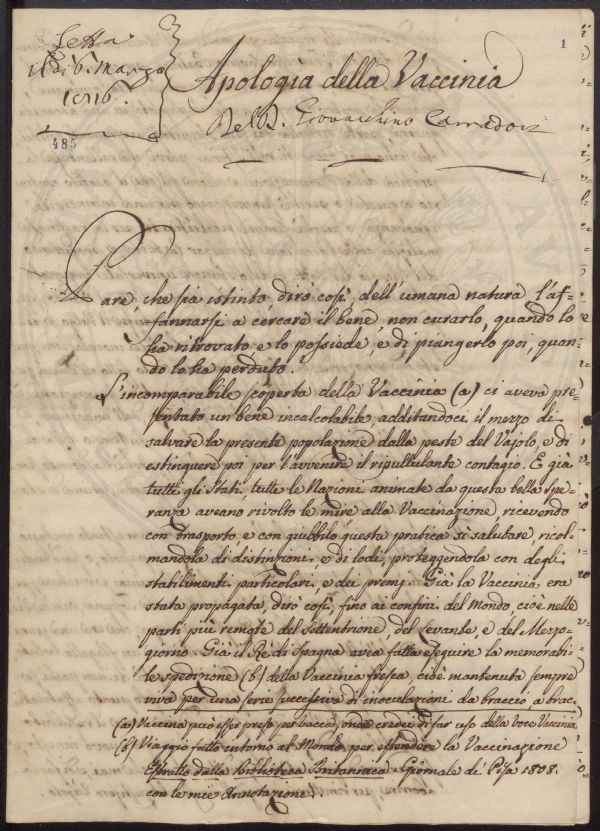 Letta
il dì 6. Marzo
1816.
485
1
Apologìa della Vaccinia
Del D. Giovacchino Carradori
Pare, che sia istinto, dirò così, dell'umana natura l'af-
fannarsi a cercare il bene, non curarlo, quando lo
ha ritrovato e lo possiede, e di piangerlo poi, quan-
do lo ha perduto.
L'incomparabile scoperta della Vaccinia (a) ci aveva pre-
sentato un bene incalcolabile, additandoci il mezzo di
salvare la presente popolazione dalla peste del Vajolo, e di
estinguere poi per l'avvenire il ripullulante contagio. E già
tutti gli Stati, tutte le Nazioni animate da questa bella spe-
ranza aveano rivolto le mire alla Vaccinazione, ricevendo
con trasporto, e con giubbilo questa pratica sì salutare, ricol-
mandola di distinzioni, e di lodi, proteggendola con degli
stabilimenti particolari, e dei premj. Già la Vaccinia era
stata propagata, dirò così, fino ai confini del Mondo, cioè nelle
parti più remote del Settentrione, del Levante, e del Mezzo-
giorno. Già il Re di Spagna avea fatta eseguire la memorabi-
le spedizione (b) della Vaccinia fresca, cioè mantenuta sempre
viva per una serie successiva di inoculazioni da braccio a brac-
(a) Vaccina può esser preso per Vacca, onde credei di far uso della voce Vaccinia
(b) Viaggio fatto intorno al Mondo per estendere la Vaccinazione
Estratto dalla Biblioteca Britannica. Giornale di Pisa 1808.
con le mie Annotazioni.